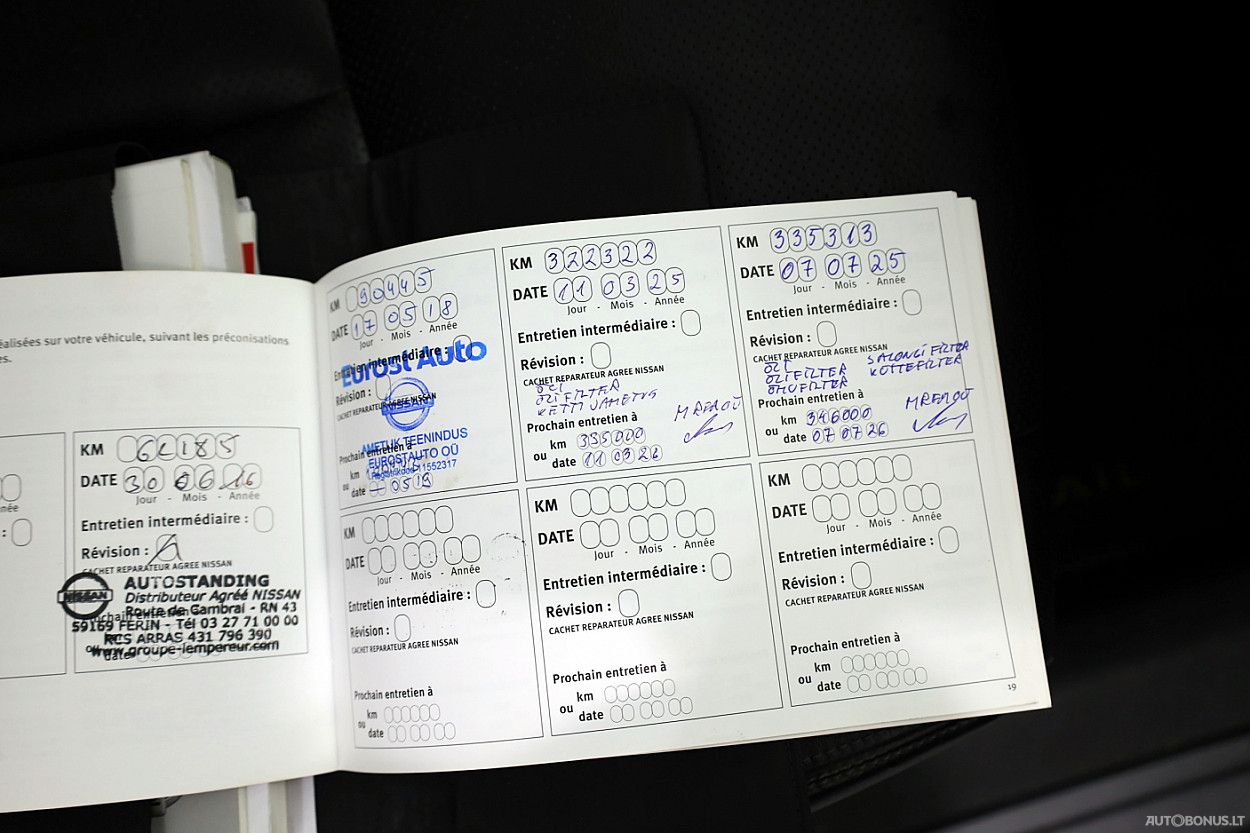 éalisées sur votre véhicule, suivant les préconisations
es.
née
:
KM 62185
DATE 30 06 16
Jour - Mois - Année
Entretien intermédiaire :
Révision :
CACHET REPARATEUR AGREE NISSAN
NISSAN
AUTOSTANDING
Distributeur Agréé NISSAN
Route de Cambrai - RN 43
59169 FERIN - Tél 03 27 71 00 00
RCS ARRAS 431 796 390
www.groupe-lempereur.com
date
KM 90445
DATE 17 05 18
Jour - Mois - Année
Entretien intermédiaire :
Eurost Auto
Révision :
CACHET REPARATEUR AGREE NISSAN
NISSAN
AMETLIK TEENINDUS
Prochain entretien à
EUROSTAUTO OÜ
km
Registrikood 11552317
ou
date - 05 19
KM 322322
DATE 11 03 25
Jour - Mois - Année
Entretien intermédiaire :
Révision :
CACHET REPARATEUR AGREE NISSAN
ÕLI
ÕLIFILTER
KETTI VAHETUS
Prochain entretien à
km 335000
ou
date 11 03 26
KM 335313
DATE 07 07 25
Jour - Mois - Année
Entretien intermédiaire :
Révision :
CACHET REPARATEUR AGREE NISSAN
ÕLI SALONGI FILTER
ÕLIFILTER KÜTTEFILTER
ÕHUFILTER
Prochain entretien à
km 346000
ou
date 07 07 26
KM
DATE
Jour - Mois - Année
Entretien intermédiaire :
Révision :
CACHET REPARATEUR AGREE NISSAN
Prochain entretien à
km
ou
date
KM
DATE
Jour - Mois - Année
Entretien intermédiaire :
Révision :
CACHET REPARATEUR AGREE NISSAN
Prochain entretien à
km
ou
date
KM
DATE
Jour - Mois - Année
Entretien intermédiaire :
Révision :
CACHET REPARATEUR AGREE NISSAN
Prochain entretien à
km
ou
date
19
AUTOBONUS.LT